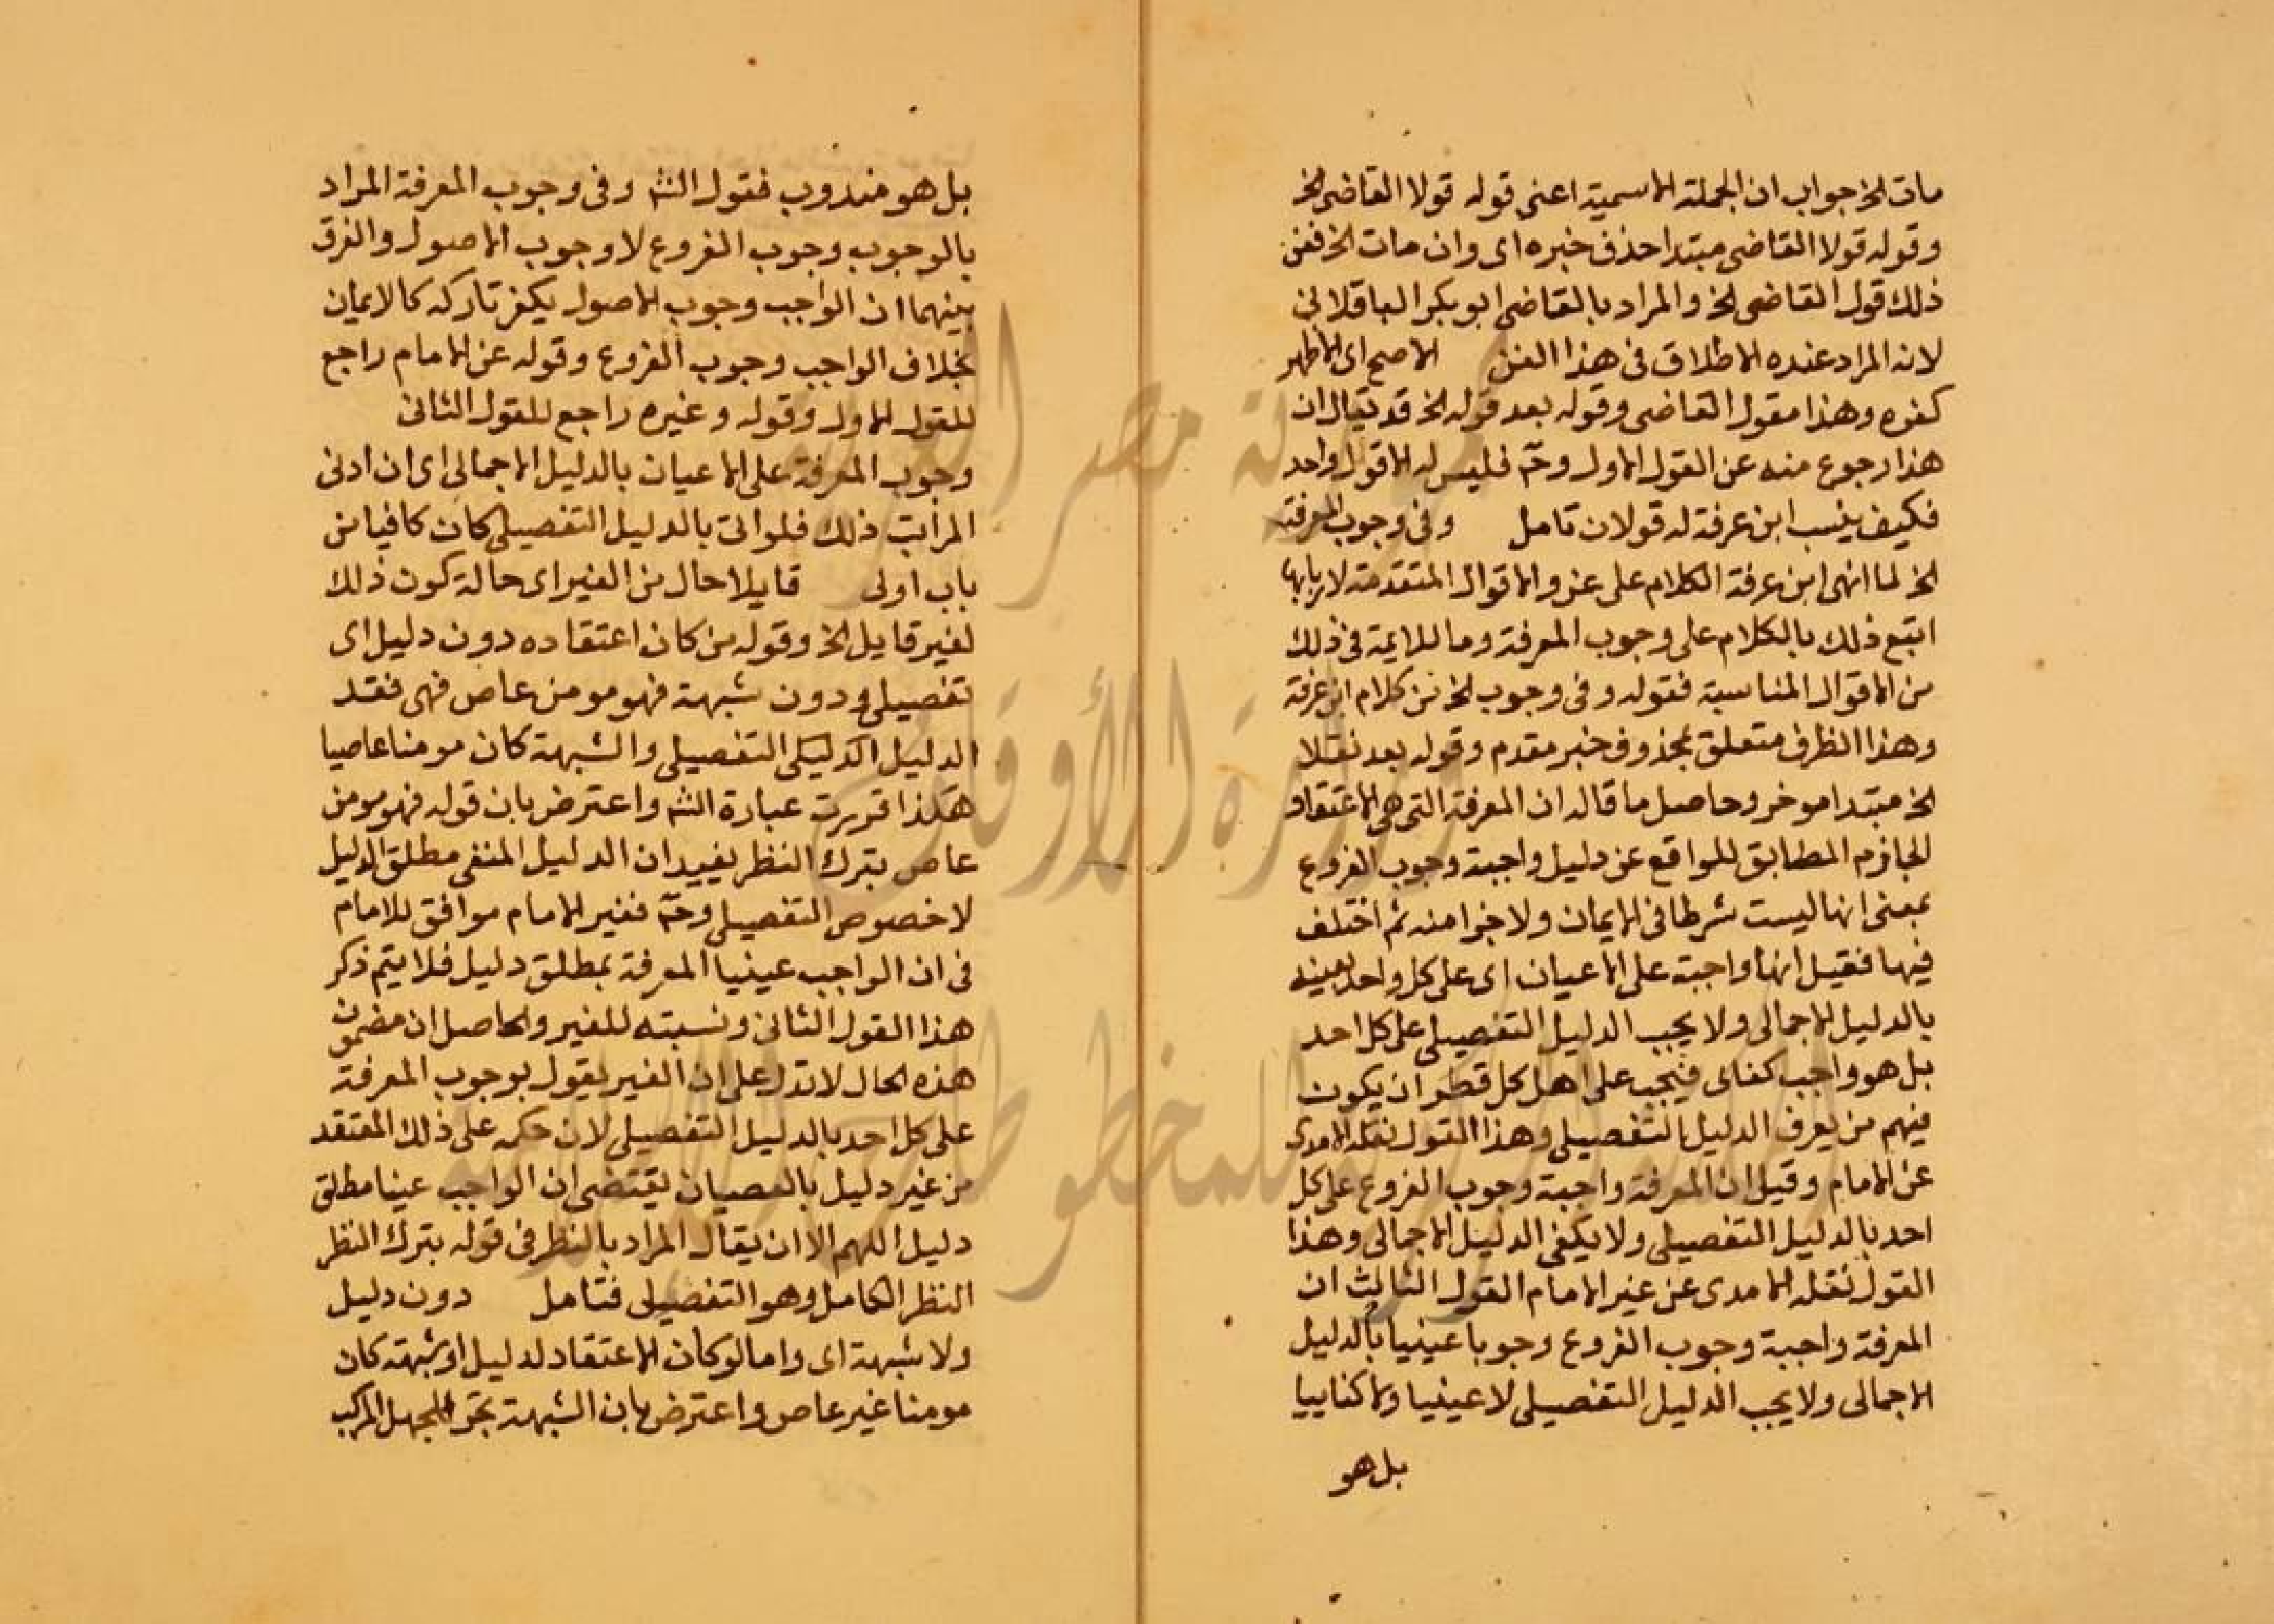 مات الخ جواب ان الجملة الاسمية اعنى قوله قولا القاضى الخ
وقوله قولا القاضى مبتدا حذف خبره اى وان مات الخ ففى
ذلك قول القاضى الخ والمراد بالقاضى ابو بكر الباقلانى
لانه المراد عنده الاطلاق فى هذا الفن الاصح اى الاظهر
كفره وهذا مقول القاضى وقوله بعد قوله الخ قد يقال ان
هذا رجوع منه عن القول الاول وحـ فليس له الا قول واحد
فكيف ينسب ابن عرفة له قولان تامل وفى وجوب المعرفة
الخ لما انهى ابن عرفة الكلام على عزو الاقوال المتقدمة لاربابها
اتبع ذلك بالكلام على وجوب المعرفة وما للايمة فى ذلك
من الاقوال المناسبة فقوله وفى وجوب الخ من كلام ابن عرفة
وهذا الظرف متعلق بمحذوف خبر مقدم وقوله بعد نقلا
الخ مبتدا موخر وحاصل ما قاله ان المعرفة التى هى الاعتقاد
الجازم المطابق للواقع عن دليل واجبة وجوب الفروع
بمعنى انها ليست شرطا فى الايمان ولا جزا منه ثم اختلف
فيها فقيل انها واجبة على الاعيان اى على كل واحد بعينه
بالدليل الاجمالى ولا يجب الدليل التفصيلى على كل احد
بل هو واجب كفاى فيجب على اهل كل قطر ان يكون
فيهم من يعرف الدليل التفصيلى وهذا القول نقله الامدى
عن الامام وقيل ان المعرفة واجبة وجوب الفروع على كل
احد بالدليل التفصيلى ولا يكفى الدليل الاجمالى وهذا
القول نقله الامدى عن غير الامام القول الثالث ان
المعرفة واجبة وجوب الفروع وجوبا عينيا بالدليل
الاجمالى ولا يجب الدليل التفصيلى لا عينيا ولا كفاييا
بل هو
بل هو مندوب فقول الشـ وفى وجوب المعرفة المراد
بالوجوب وجوب الفروع لا وجوب الاصول والفرق
بينهما ان الواجب وجوب الاصول يكفر تاركه كالايمان
بخلاف الواجب وجوب الفروع وقوله عن الامام راجع
للقول الاول وقوله وغيره راجع للقول الثانى
وجوب المعرفة على الاعيان بالدليل الاجمالى اى ان ادنى
المراتب ذلك فلو اتى بالدليل التفصيلى كان كافيا من
باب اولى قايلا حال من الغير اى حالة كون ذلك
لغير قايل الخ وقوله من كان اعتقاده دون دليل اى
تفصيلى ودون شبهة فهو مومن عاص فهى فقد
الدليل التفصيلى والشبهة كان مومنا عاصيا
هكذا قررت عبارة الشـ واعترض بان قوله فهو مومن
عاص بترك النظر يفيد ان الدليل المنفى مطلق الدليل
لا خصوص التفصيلى وحـ فغير الامام موافق للامام
فى ان الواجب عينيا المعرفة بمطلق دليل فلا يتم ذكر
هذا القول الثانى ونسبته للغير والحاصل ان مضمون
هذه الحال لا تدل على ان الغير يقول بوجوب المعرفة
على كل احد بالدليل التفصيلى لان حكمه على ذلك المعتقد
من غير دليل بالعصيان يقتضى ان الواجب عينا مطلق
دليل اللهم الا ان يقال المراد بالنظر فى قوله بترك النظر
النظر الكامل وهو التفصيلى فتامل دون دليل
ولا شبهة اى واما لو كان الاعتقاد لدليل او شبهة كان
مومنا غير عاص واعترض بان الشبهة تجر للجهل المركب
جمهورية مصر العربية
وزارة الأوقاف